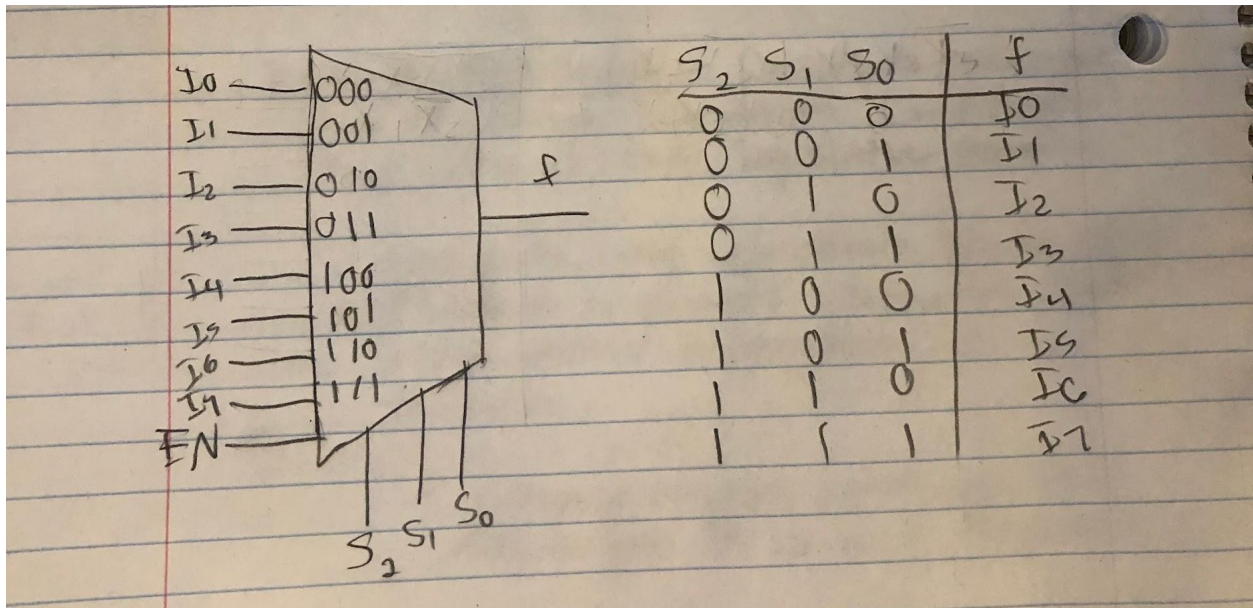 I0 000
I1 001
I2 010
I3 011
I4 100
I5 101
I6 110
I7 111
EN
f
S2 S1 S0
S2 S1 S0 f
0 0 0 I0
0 0 1 I1
0 1 0 I2
0 1 1 I3
1 0 0 I4
1 0 1 I5
1 1 0 I6
1 1 1 I7